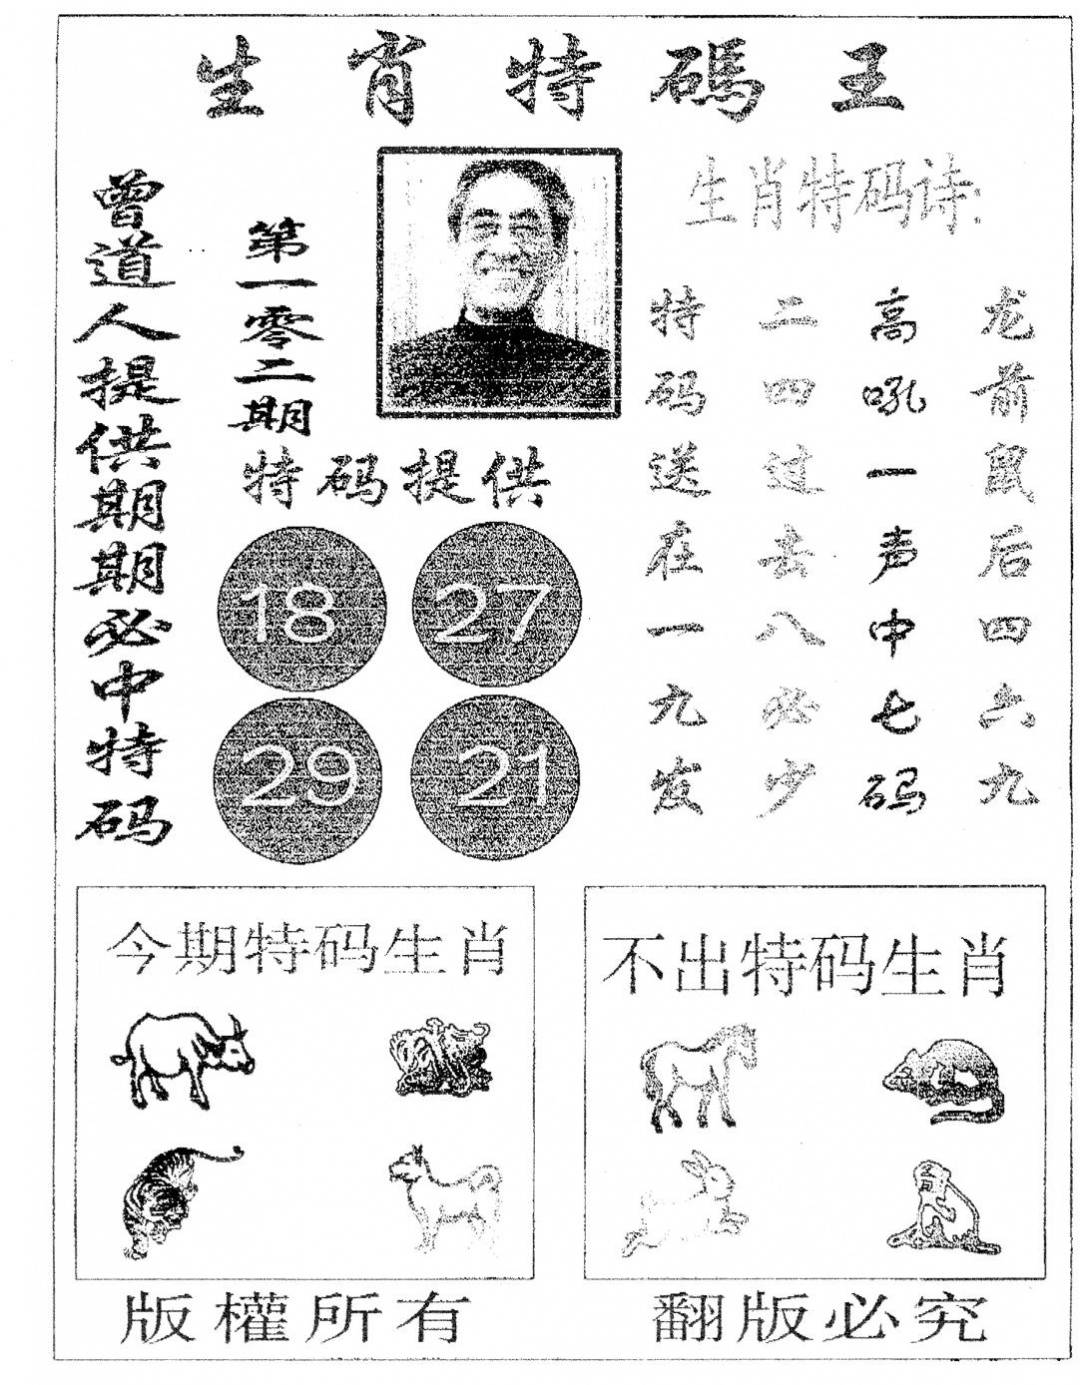 生肖特碼王
曾道人提供期期必中特码
第一零二期
特码提供
18 27
29 21
生肖特码诗:
龙前鼠后四六九
高吼一声中七码
二四过去八必少
特码送在一九发
今期特码生肖
不出特码生肖
版權所有
翻版必究